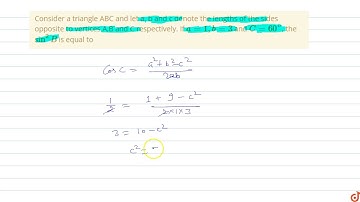 Consider a triangle ABC and let a, b and c denote the lengths of the sides
opposite to vertices A,B and C respectively. If a = 1, b = 3 and C = 60°, the
sin² B is equal to
Cos C = a²+b²-c² / 2ab
1/2 = 1+9-c² / 2×1×3
3 = 10-c²
c² =
doubtnut